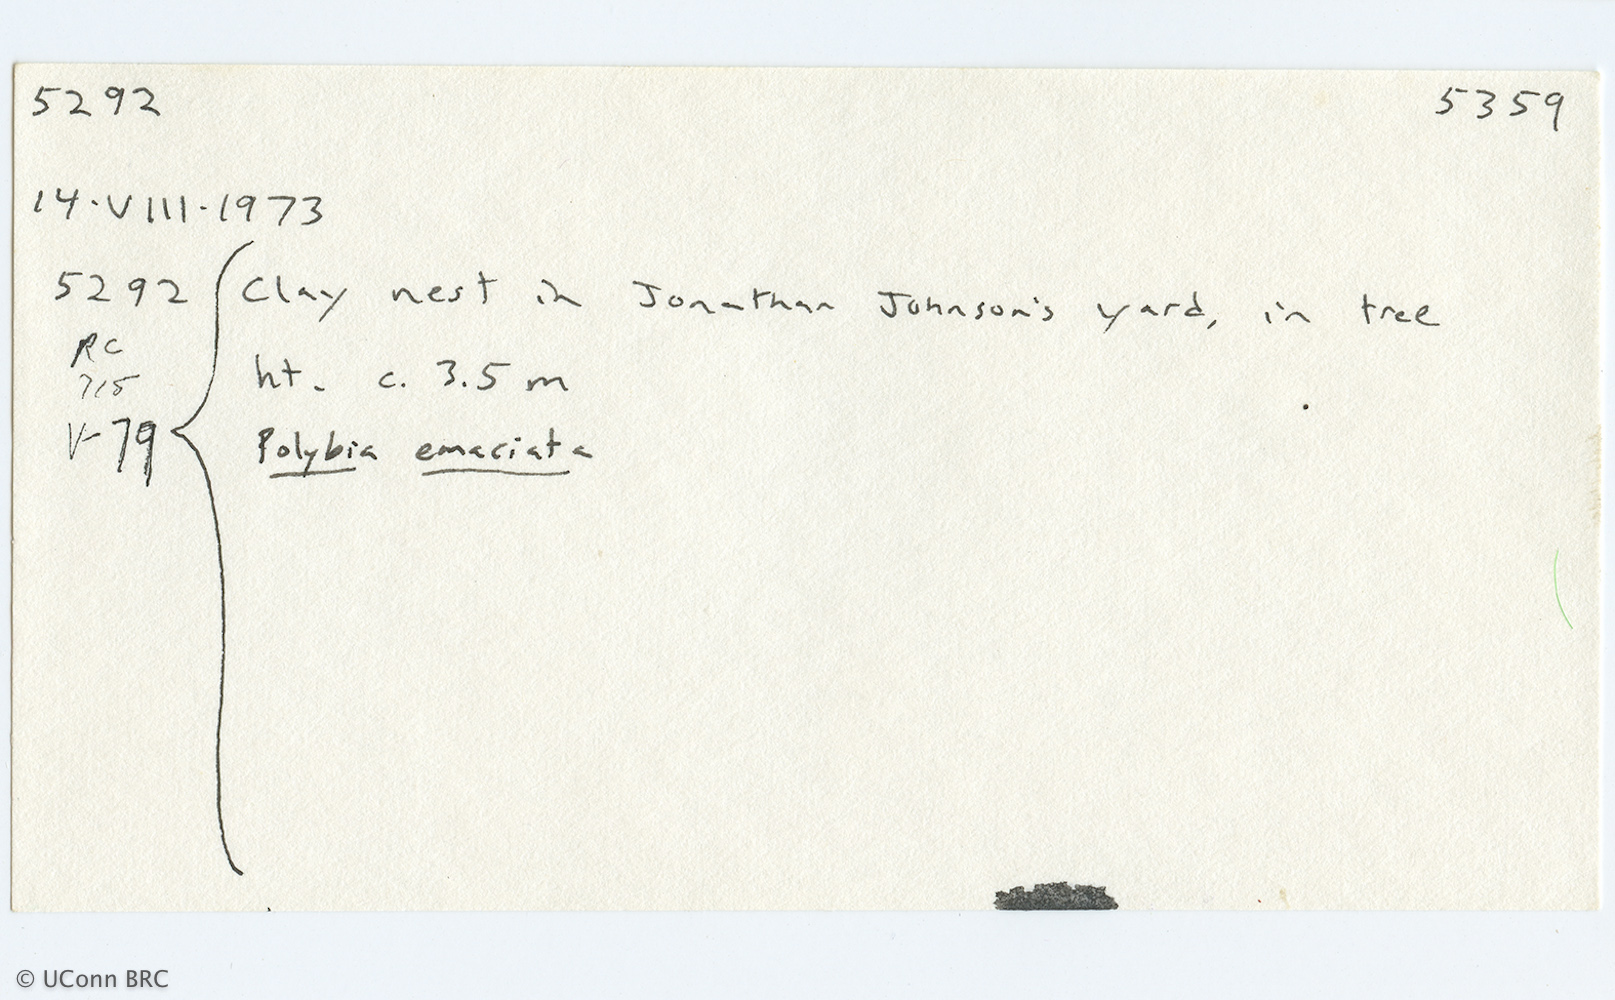 5292 5359
14·VIII·1973
5292 Clay nest in Jonathan Johnson's yard, in tree
RC ht. c. 3.5 m
715
V-79 Polybia emaciata
© UConn BRC